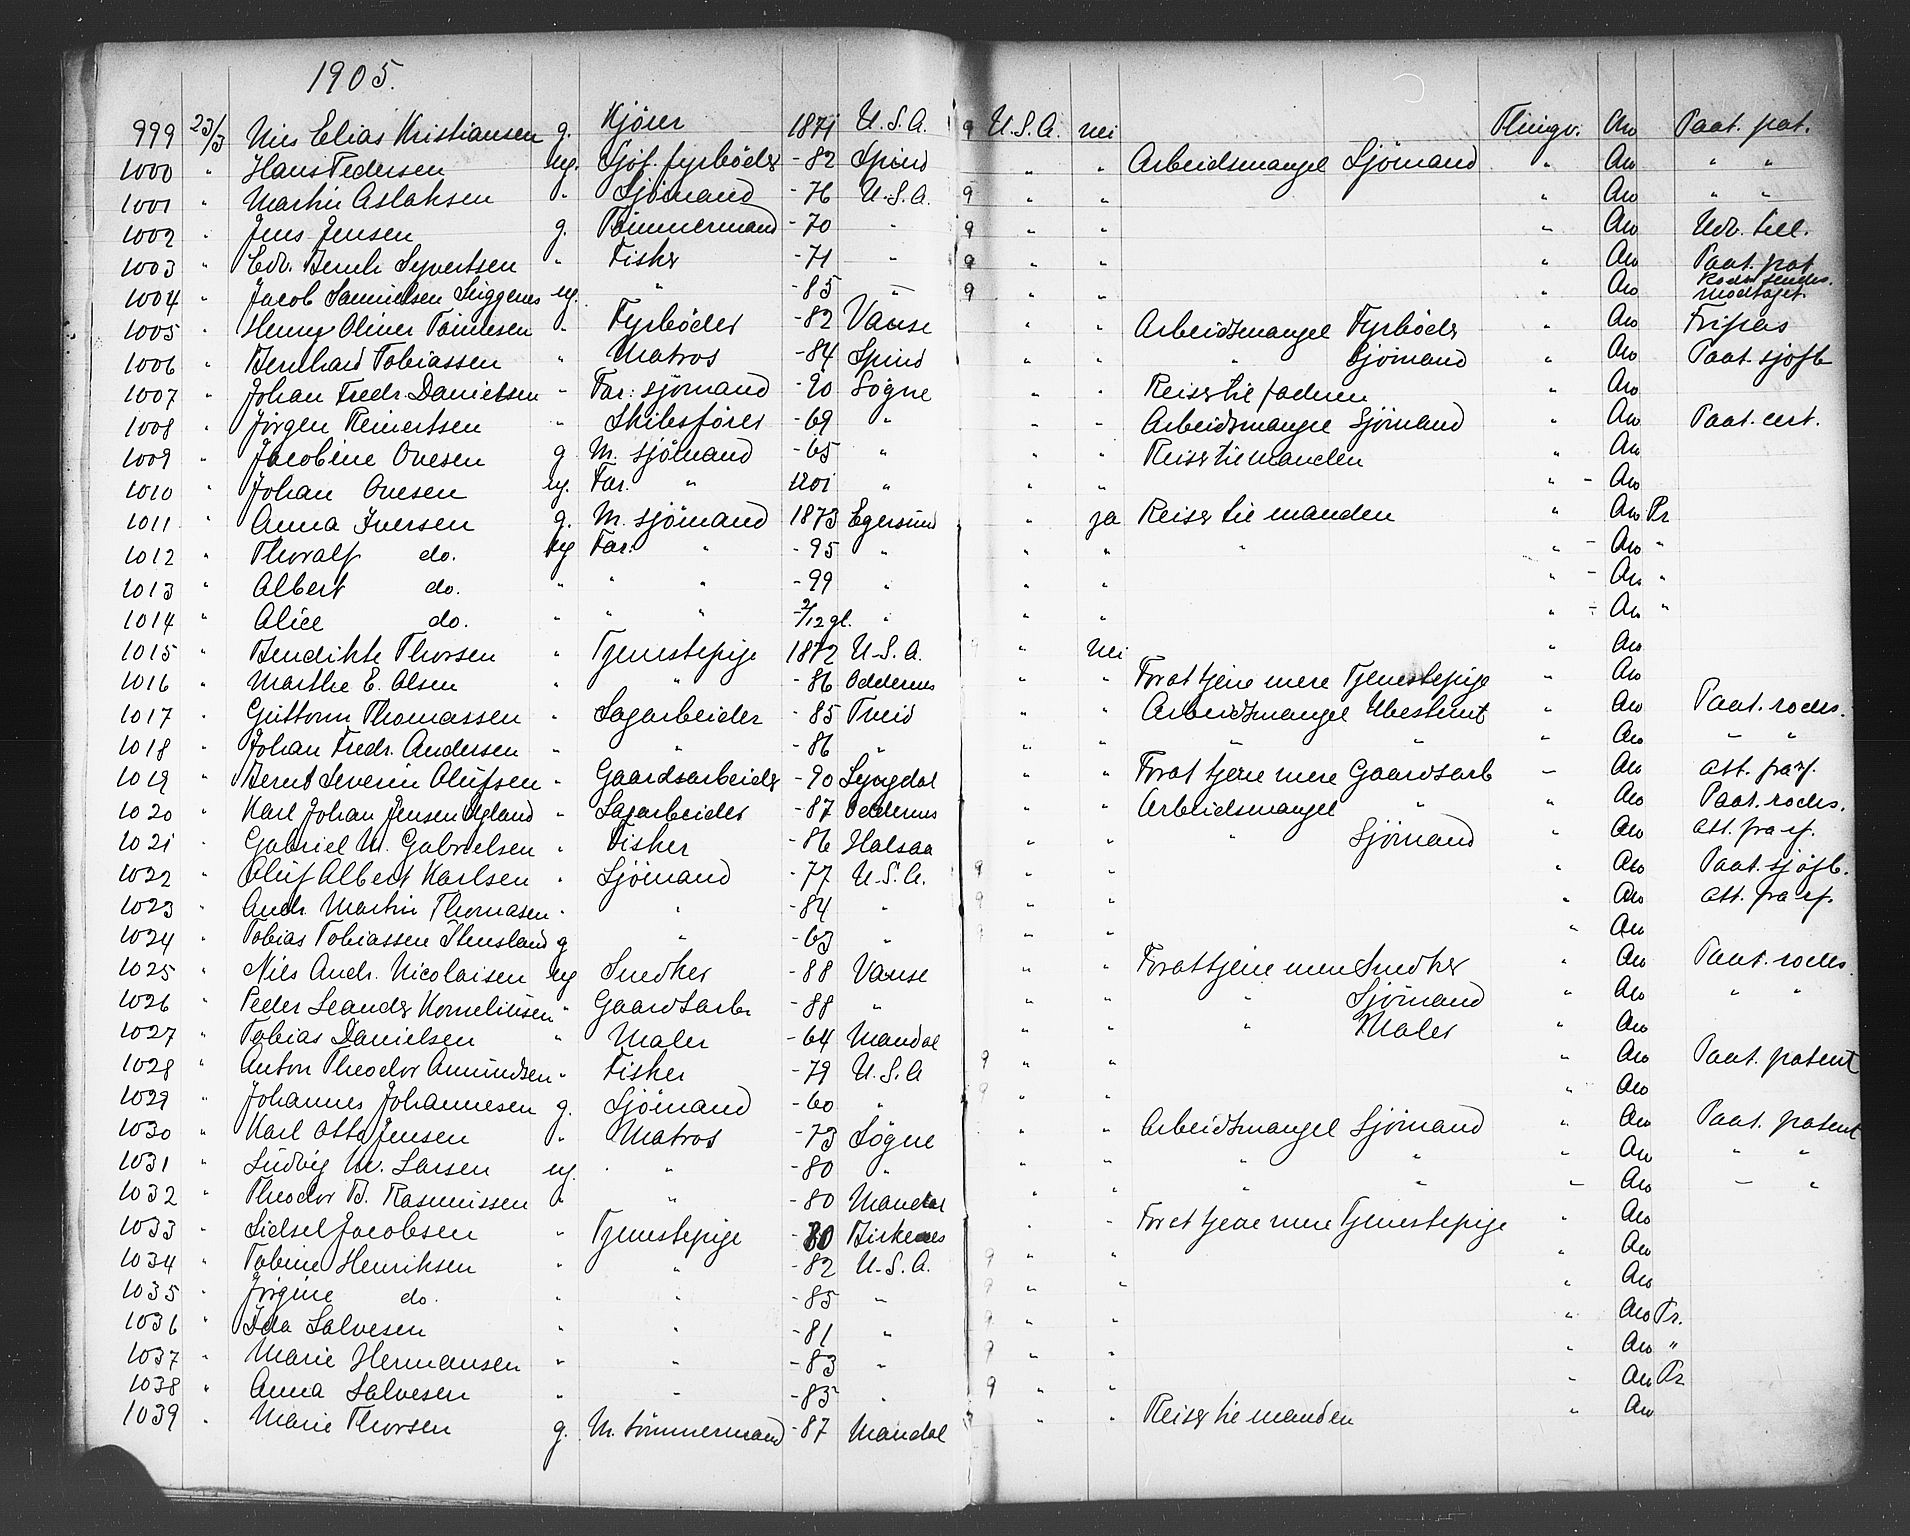 1905.
999 23/3 Nils Elias Kristiansen g. Kjører 1871 U.S.A. 9 U.S.A. nei Flingv. Aw Paat. pat.
1000 " Hans Pedersen ug. Sjøf. fyrbøder -82 Spind " " Arbeidsmangel Sjømand " Aw " "
1001 " Martin Aslaksen " Sjømand -76 U.S.A. 9 " " " Aw " "
1002 " Jens Jensen g. Tømmermand -70 " 9 " " " Aw Udv. till.
1003 " Edv. Bernh Syvertsen " Fisker -71 " 9 " " " Aw Paat. pat
1004 " Jacob Samuelsen ug. " -85 " 9 " " " Aw modtaget.
1005 " Henny Oliver Tønnesen " Fyrbøder -82 Vanse " " Arbeidsmangel Fyrbøder " Aw Fripas
1006 " Bernhard Tobiassen " Matros -84 Spind " " " Sjømand " Aw Paat. sjøfb
1007 " Johan Fredr. Danielsen " Far: sjømand -90 Søgne " " Reiser til faderen " Aw
1008 " Jørgen Reinertsen " Skibsfører -69 " " " Arbeidsmangel Sjømand " Aw Paat. cert.
1009 " Jacobine Ovesen g M. sjømand -65 " " " Reiser til manden " Aw
1010 " Johan Ovesen ug. Far. " 1201 " " " " - Aw
1011 " Anna Iversen g. M. sjømand 1873 Egersund " ja Reiser til manden " Aw Pr
1012 " Thoralf do. ug Far. " -95 " " " " " - Aw "
1013 " Albert do. " " " -99 " " " " - Aw "
1014 " Alice do. " " " -2/12 gl. " " " " - Aw "
1015 " Bendikte Thorsen " Tjenestepige 1872 U.S.A. 9 " nei " Aw
1016 " Marthe E. Olsen " " -86 Oddernes " " For at tjene mere Tjenestepige " Aw
1017 " Guttorm Thomassen " Sagarbeider -85 Tveid " " Arbeidsmangel Ubestemt " Aw Paat. rodes.
1018 " Johan Fredr. Andersen " " -86 " " " " " " Aw " "
1019 " Bernt Severin Olufsen " Gaardsarbeider -90 Lyngdal " " For at tjene mere Gaardsarb " Aw att. fra rf.
1020 " Karl Johan Jensen Ugland " Sagarbeider -87 Oddernes " " Arbeidsmangel " " Aw Paat. rodes.
1021 " Gabriel M. Gabrielsen " Fisker -86 Halsaa " " " Sjømand " Aw att. fra rf.
1022 " Oluf Albert Karlsen " Sjømand -77 U.S.A. 9 " " " Aw Paat. sjøfb.
1023 " Andr. Martin Thomasen " " -84 " 9 " " " Aw att. fra rf.
1024 " Tobias Tobiassen Stensland g " -63 " 9 " " " Aw
1025 " Nils Andr. Nicolaisen ug Snedker -88 Vanse " " For at tjene mere Snedker " Aw Paat. rodes.
1026 " Peder Leander Korneliusen " Gaardsarb -88 " " " " Sjømand " Aw " "
1027 " Tobias Danielsen " Maler -64 Mandal " " " Maler " Aw
1028 " Anton Theodor Amundsen " Fisker -79 U.S.A 9 " " " Aw Paat. patent
1029 " Johannes Johannesen g. Sjømand -60 " 9 " " " Aw
1030 " Karl Otto Jensen " Matros -73 Søgne " " Arbeidsmangel Sjømand " Aw Paat. patent
1031 " Ludvig M. Larsen ug. " -80 " " " " " " Aw " "
1032 " Theodor B. Rasmussen " " -80 Mandal " " " " " Aw " "
1033 " Sidsel Jacobsen " Tjenestepige -80 Birkenes " " For at tjene mere Tjenestepige " Aw
1034 " Tobine Henriksen " " -82 U.S.A. 9 " " " Aw
1035 " Jørgine do. " " -85 " 9 " " " Aw
1036 " Ida Salvesen " " -81 " 9 " " " Aw Pr.
1037 " Marie Hermansen " " -83 " 9 " " " Aw "
1038 " Anna Salvesen " " -85 " 9 " " " Aw Pr
1039 " Marie Thorsen g. M. tømmermand -87 Mandal " " Reiser til manden " Aw